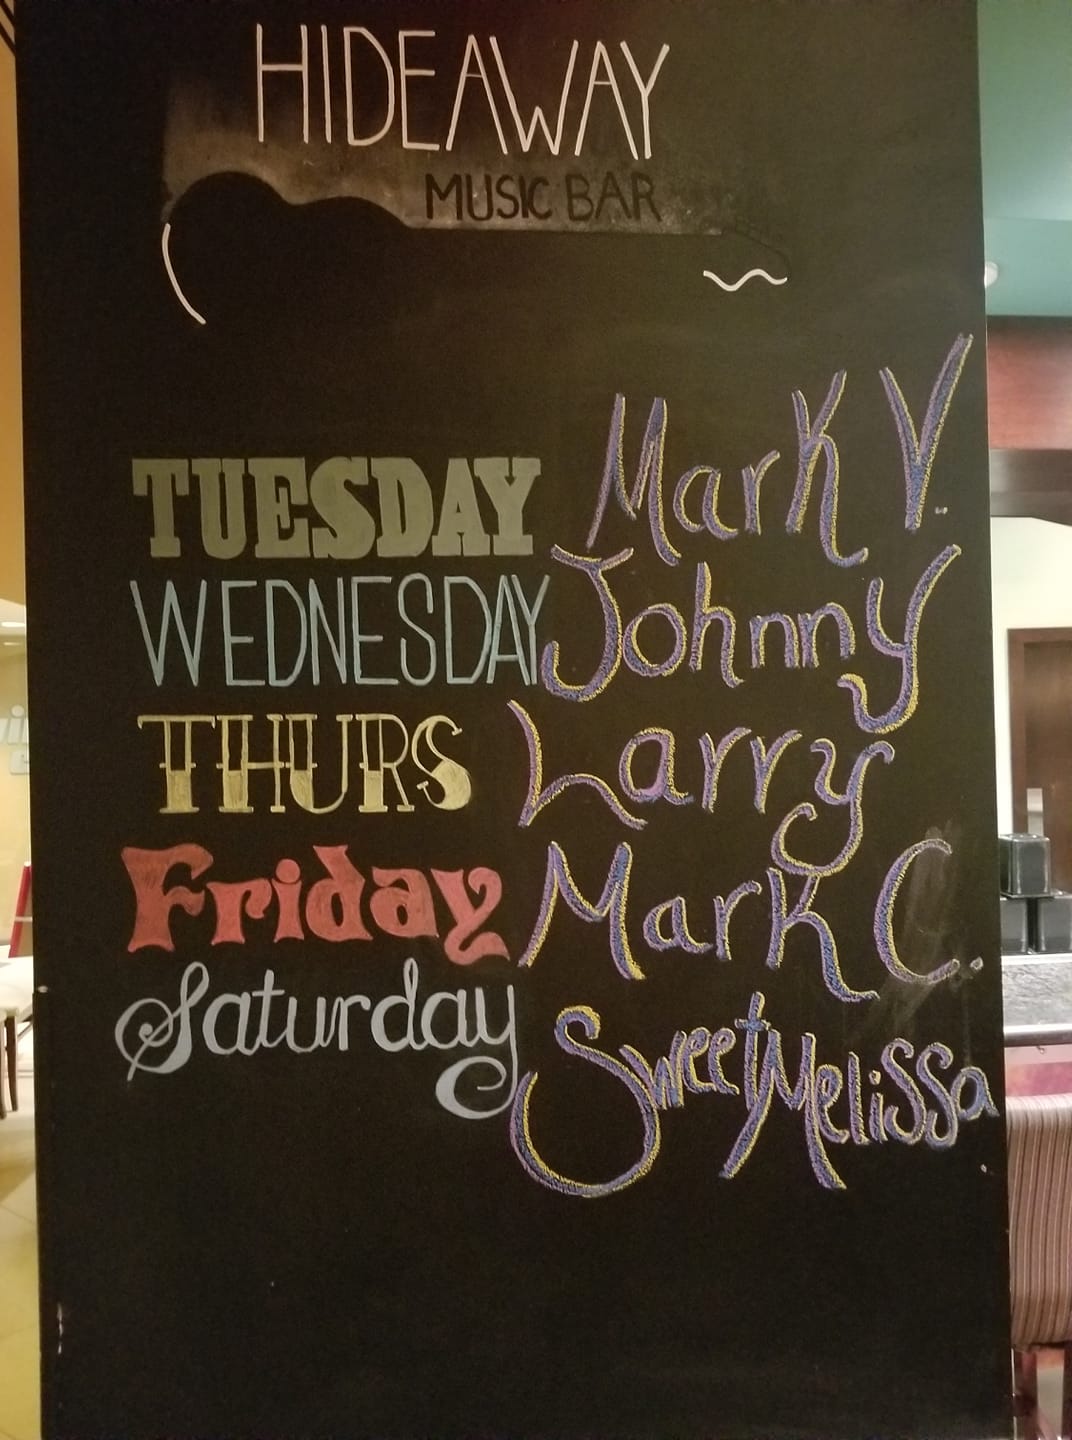 HIDEAWAY
MUSIC BAR
TUESDAY Mark V.
WEDNESDAY Johnny
THURS Larry
Friday Mark C.
Saturday Sweet Melissa